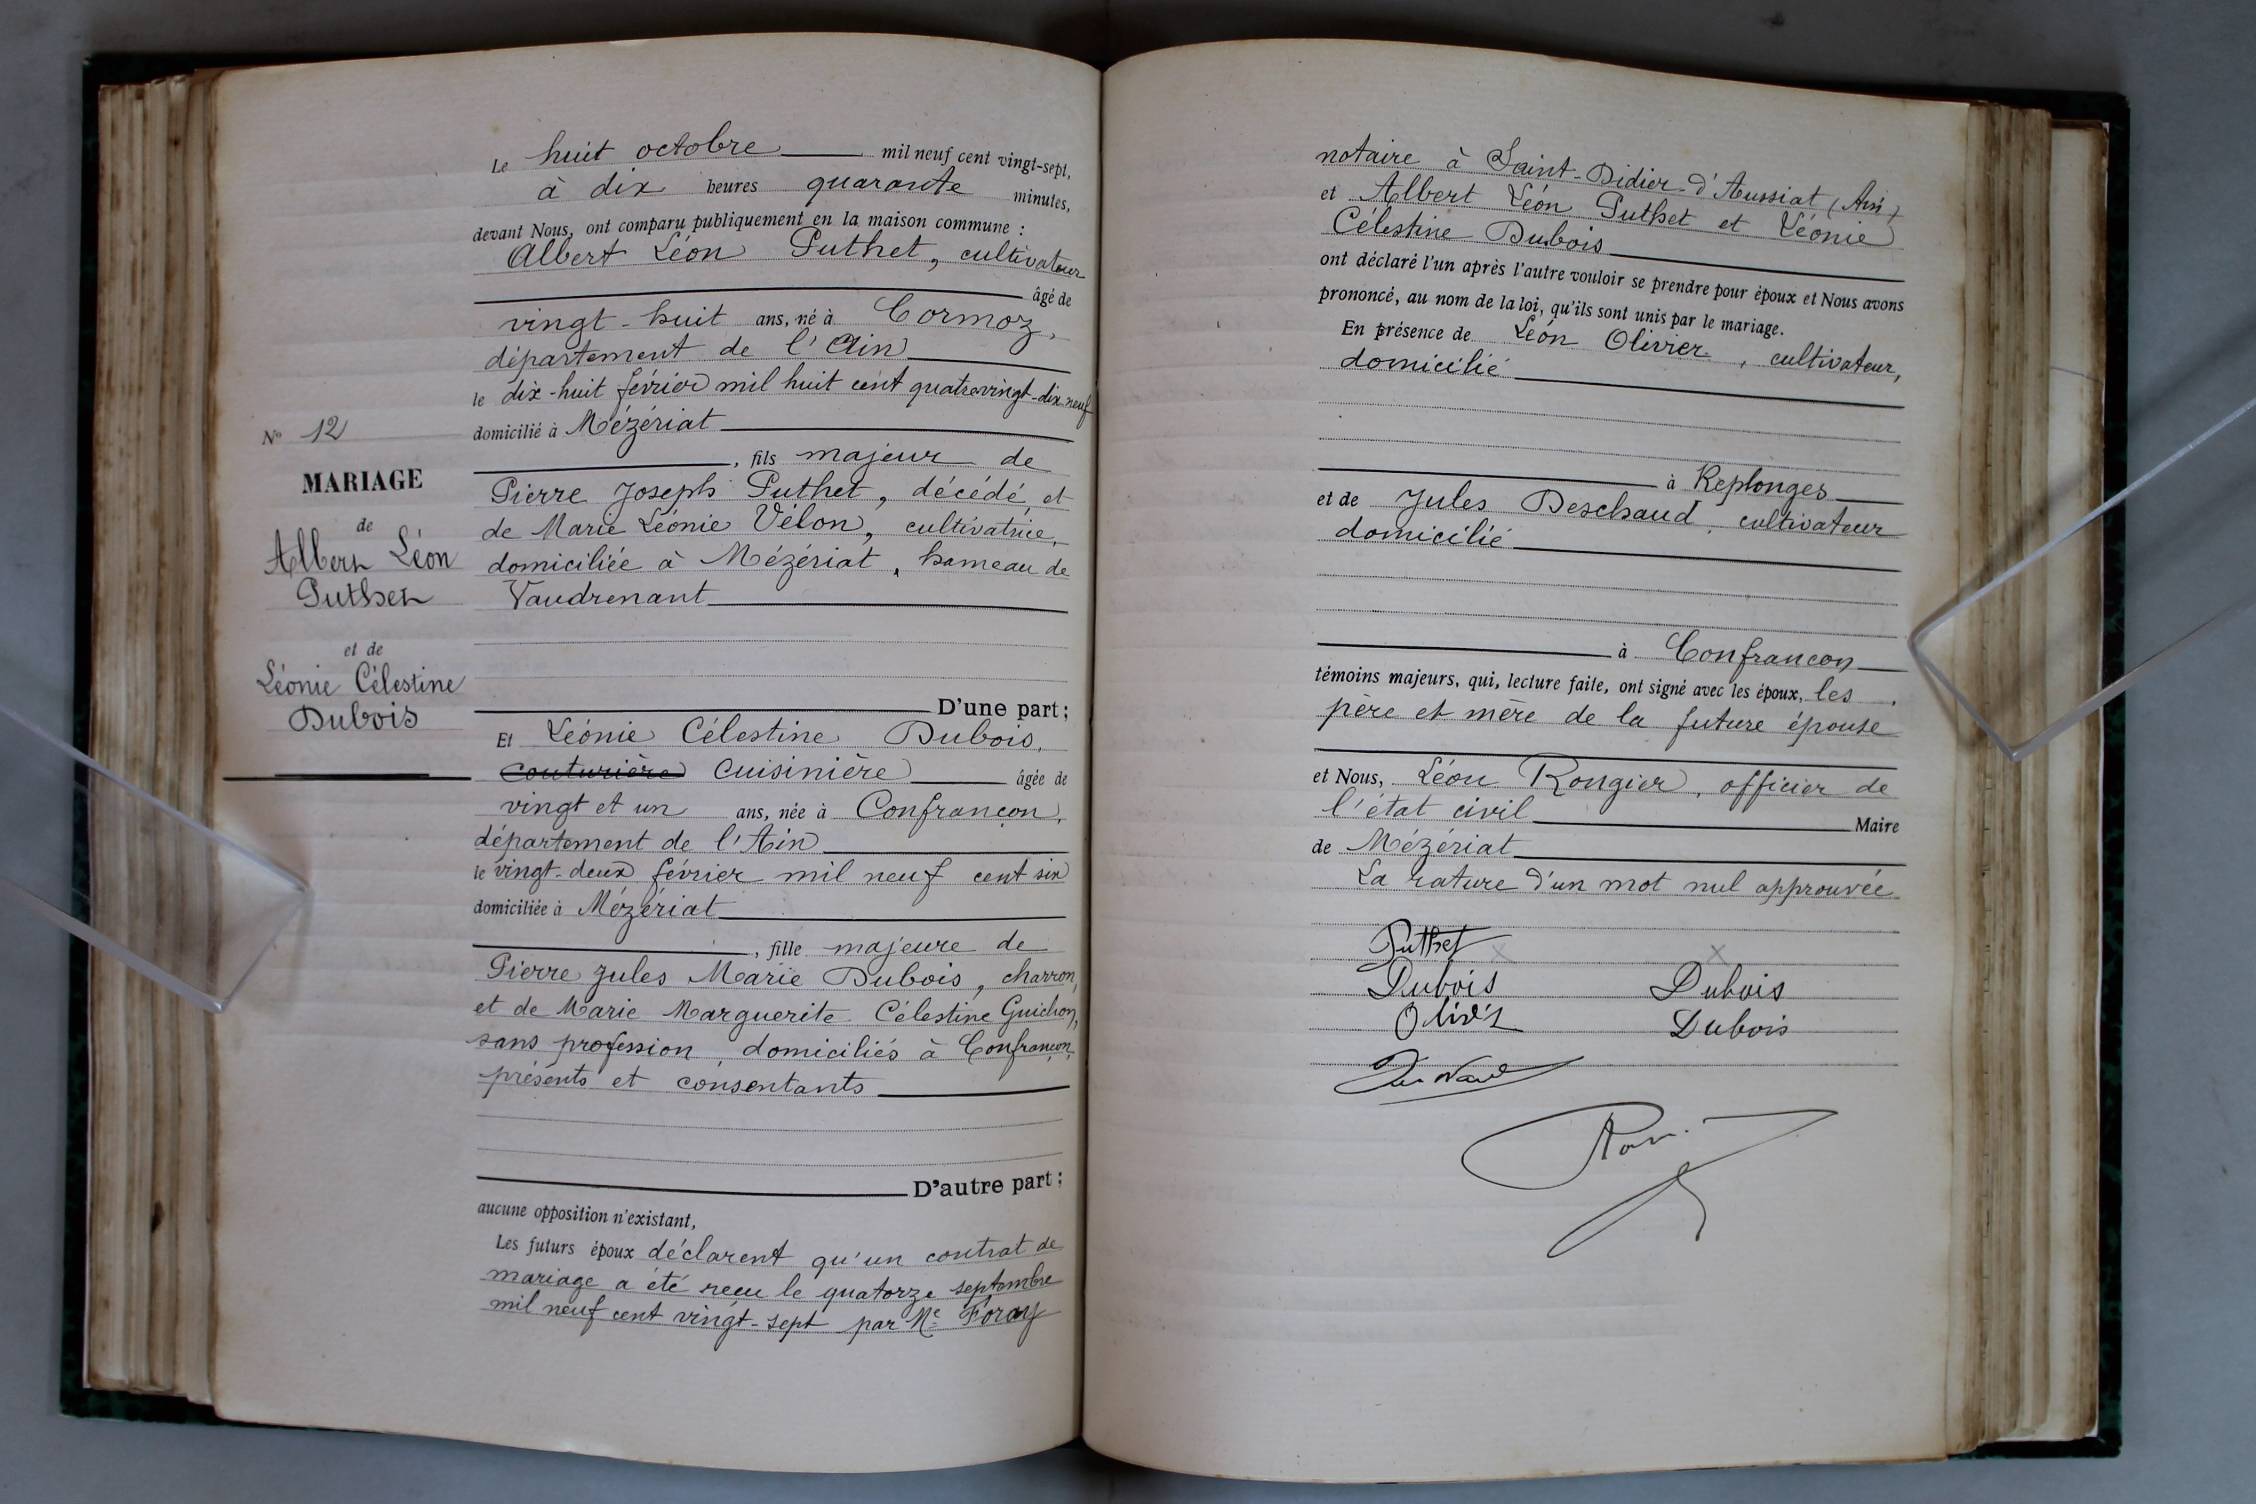 N° 12
MARIAGE
de
Albert Léon
Puthet
et de
Léonie Célestine
Dubois
Le huit octobre mil neuf cent vingt-sept,
à dix heures quarante minutes,
devant Nous, ont comparu publiquement en la maison commune :
Albert Léon Puthet, cultivateur
âgé de
vingt-huit ans, né à Cormoz,
département de l'Ain
le dix-huit février mil huit cent quatre vingt-dix neuf
domicilié à Mézériat
, fils majeur de
Pierre Joseph Puthet, décédé, et
de Marie Léonie Vélon, cultivatrice,
domiciliée à Mézériat, hameau de
Vaudrenant
D'une part ;
Et Léonie Célestine Dubois,
couturière cuisinière âgée de
vingt et un ans, née à Confrançon,
département de l'Ain
le vingt-deux février mil neuf cent six
domiciliée à Mézériat
, fille majeure de
Pierre Jules Marie Dubois, charron,
et de Marie Marguerite Célestine Guichon,
sans profession, domiciliés à Confrançon,
présents et consentants
D'autre part ;
aucune opposition n'existant,
Les futurs époux déclarent qu'un contrat de
mariage a été reçu le quatorze septembre
mil neuf cent vingt-sept par Me Foray
notaire à Saint-Didier-d'Aussiat (Ain)
et Albert Léon Puthet et Léonie
Célestine Dubois
ont déclaré l'un après l'autre vouloir se prendre pour époux et Nous avons
prononcé, au nom de la loi, qu'ils sont unis par le mariage.
En présence de Léon Olivier, cultivateur,
domicilié
à Replonges
et de Jules Deschaud, cultivateur
domicilié
à Confrancon
témoins majeurs, qui, lecture faite, ont signé avec les époux, les
père et mère de la future épouse
et Nous, Léon Rongier, officier de
l'état civil Maire
de Mézériat
La rature d'un mot nul approuvée
Puthet
Dubois Dubois
Olivier Dubois